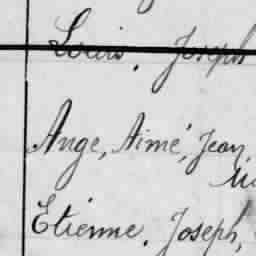 Louis, Joseph
Ange, Aimé, Jean,
Etienne, Joseph,